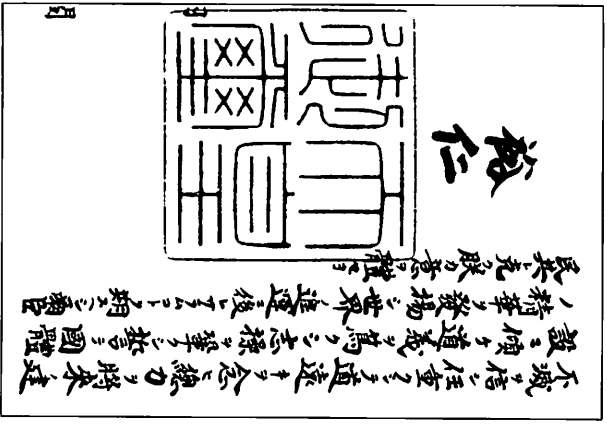 不滅ヲ信シ任重クシテ道遠キヲ念ヒ總力ヲ將來ノ建
設ニ傾ケ道義ヲ篤クシ志操ヲ鞏クシ誓テ國體
ノ精華ヲ發揚シ世界ノ進運ニ後レサラムコトヲ期スヘシ爾臣
民其レ克ク朕カ意ヲ體セヨ
裕仁
天皇御璽